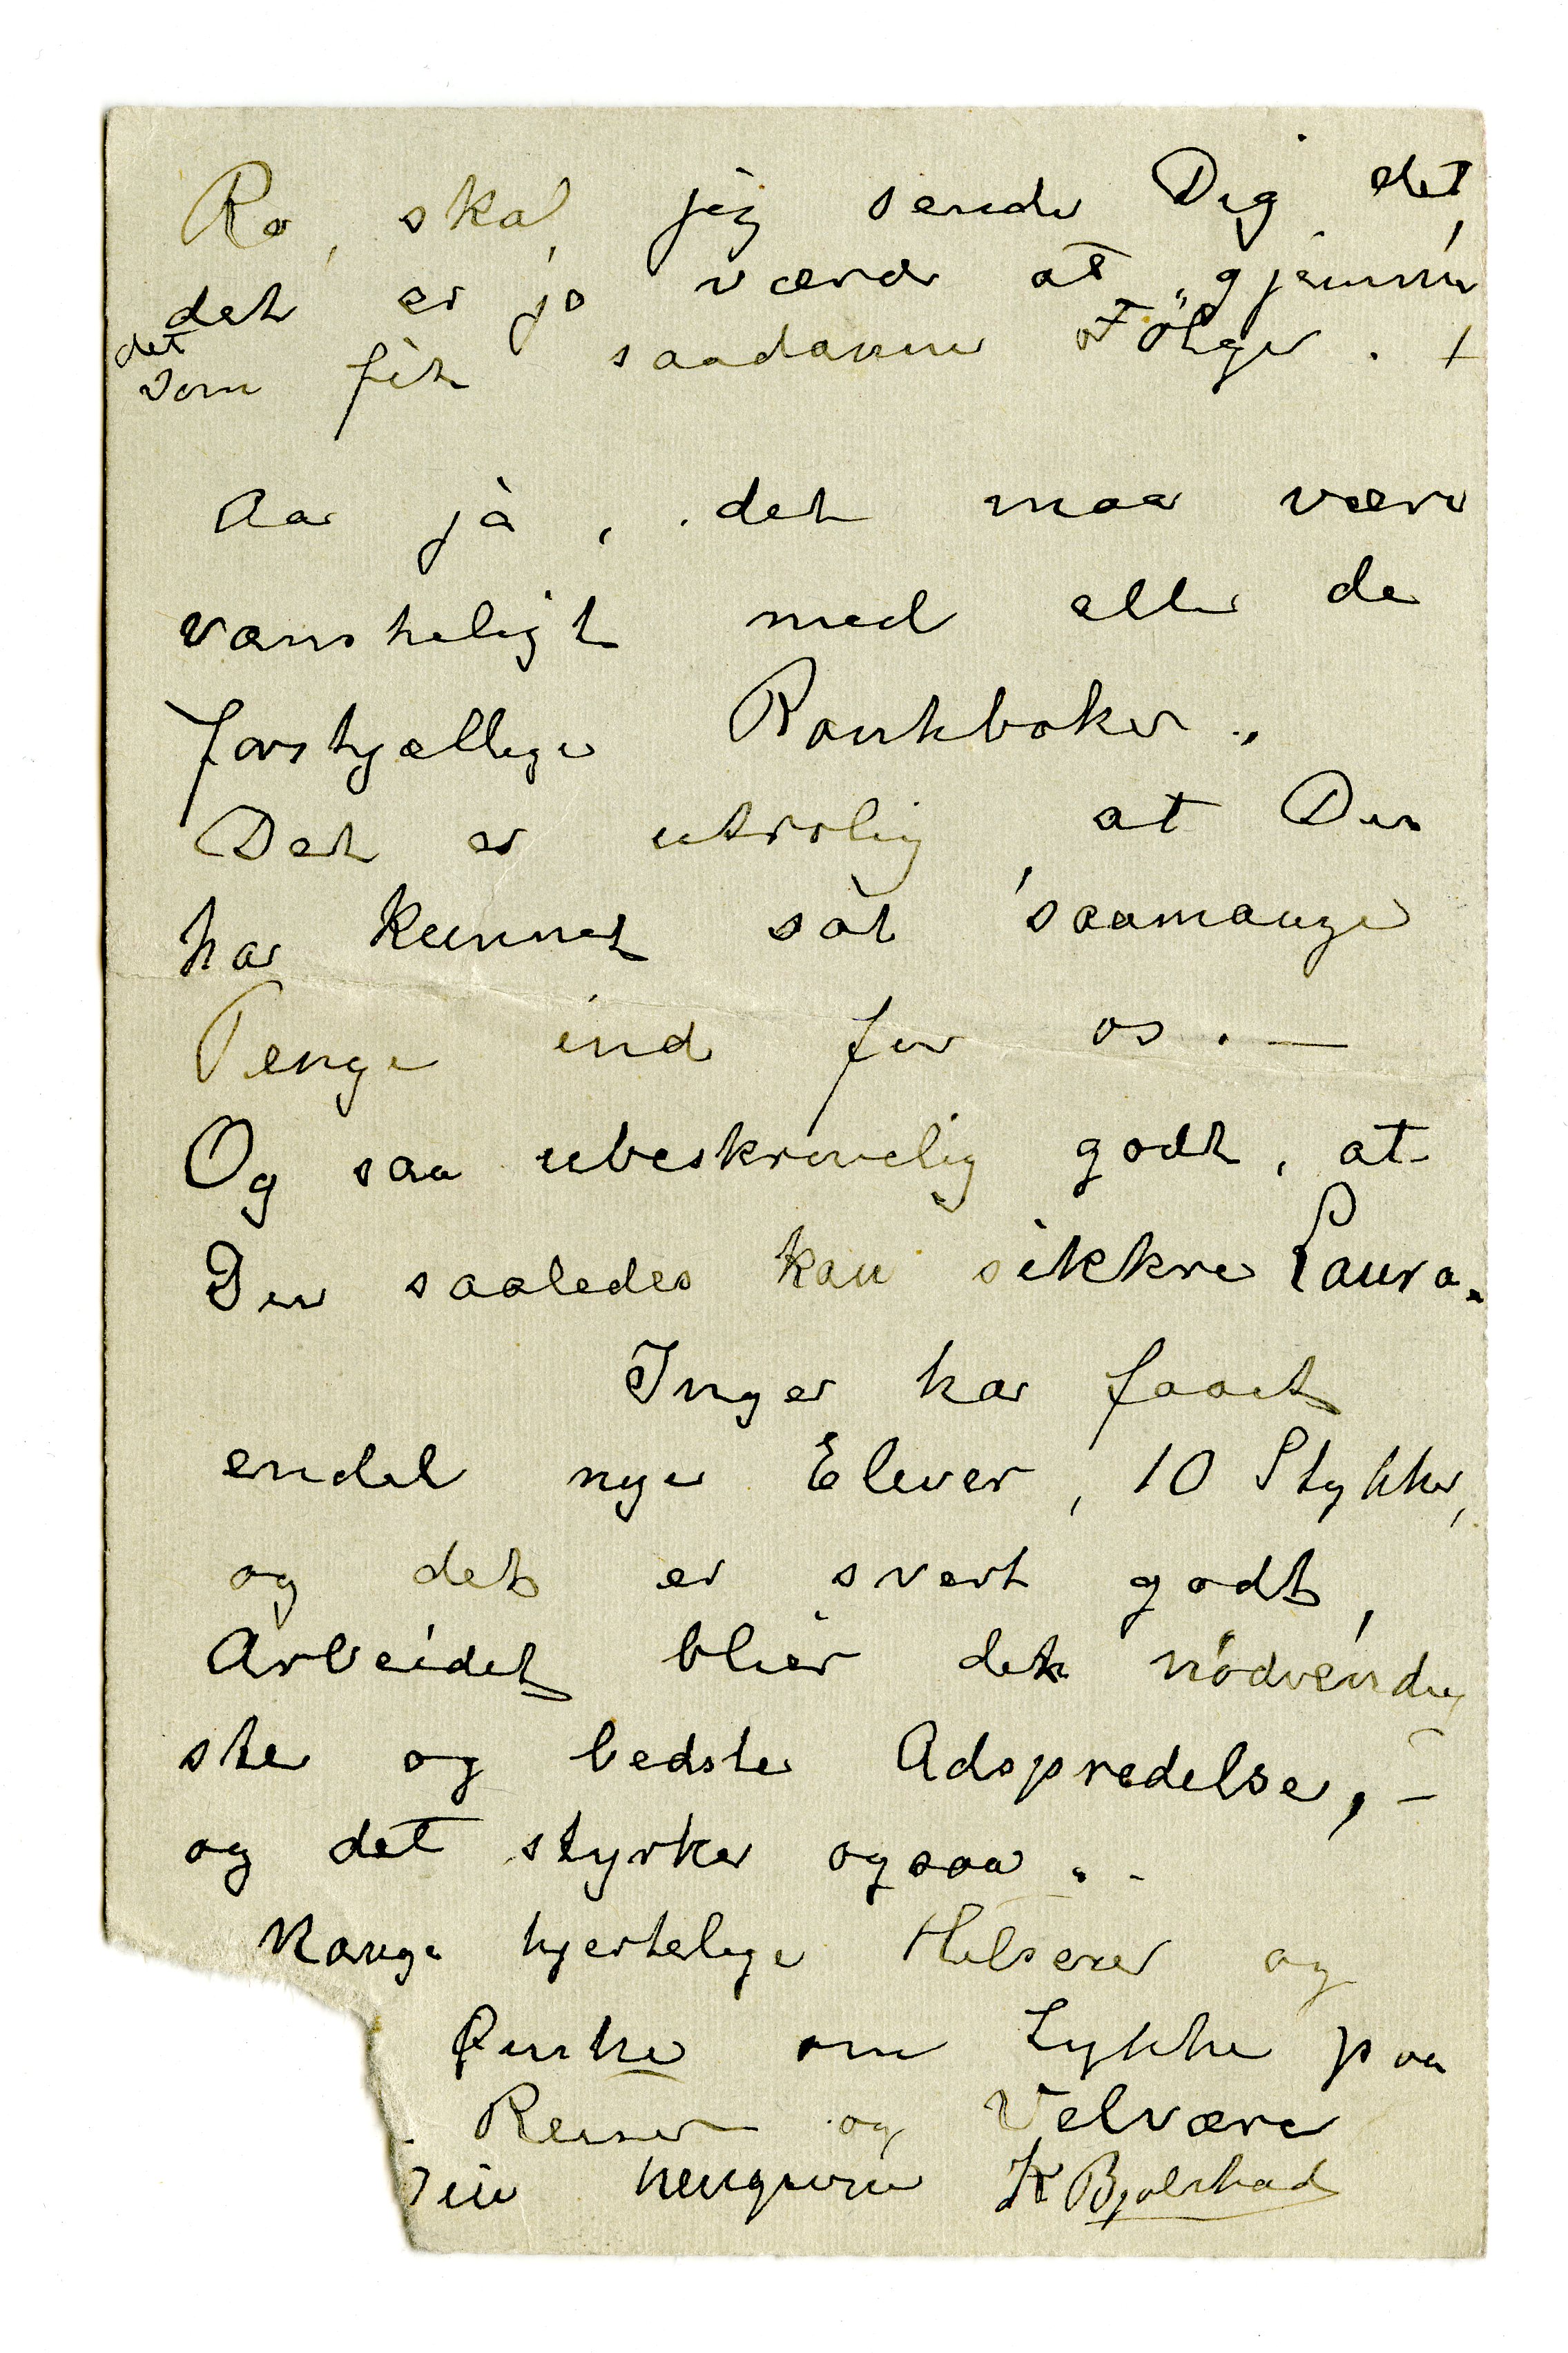 Ro, skal jeg sende Dig det,
det er jo værdt at „gjemme
det
som fik saadanne Følger. +
Aa ja, det maa være
vanskeligt med alle de
forskjællige Bankbøker.
Det er utrolig at Du
har kunnet sat saamange
Penge ind for os. —
Og saa ubeskrivelig godt, at
Du saaledes kan sikkre Laura.
Inger har faaet
endel nye Elever, 10 Stykker,
og det er svert godt,
Arbeidet blier det nödvendig
ste og bedste Adspredelse, –
og det styrker ogsaa. –
Mange hjertelige Hilsener og
Ønske om Lykke paa
Reisen og Velvære
Din hengivne K Bjølstad